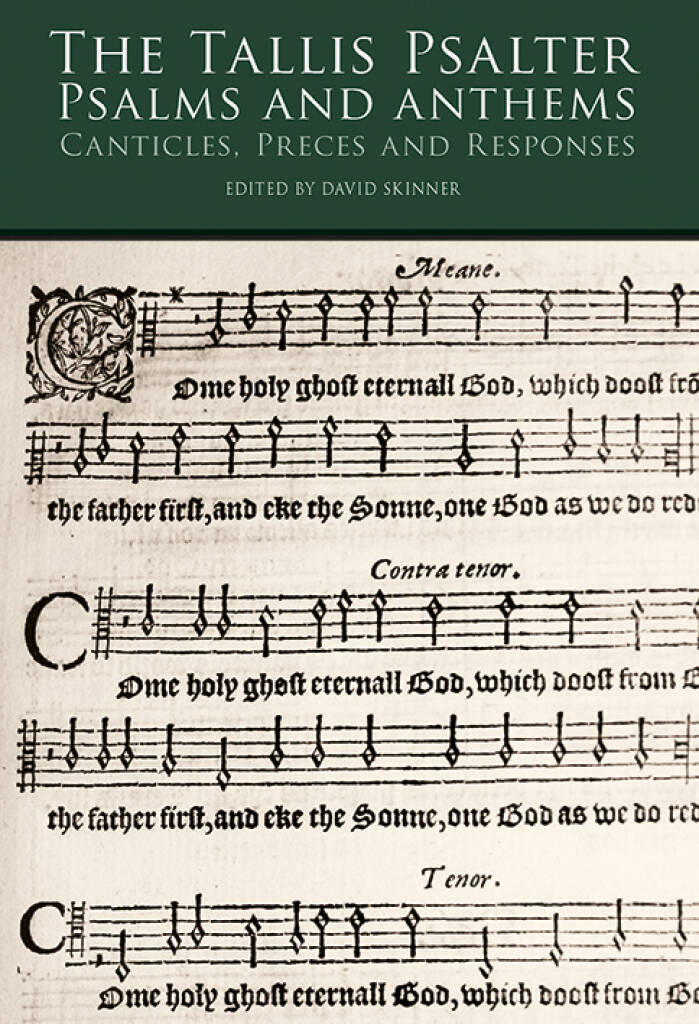 THE TALLIS PSALTER
PSALMS AND ANTHEMS
CANTICLES, PRECES AND RESPONSES
EDITED BY DAVID SKINNER
Meane.
COme holy ghost eternall God, which doost frõ
the father first, and eke the Sonne, one God as we do red
Contra tenor.
COme holy ghost eternall God, which doost from
the father first, and eke the Sonne, one God as we do red
Tenor.
COme holy ghost eternall God, which doost from